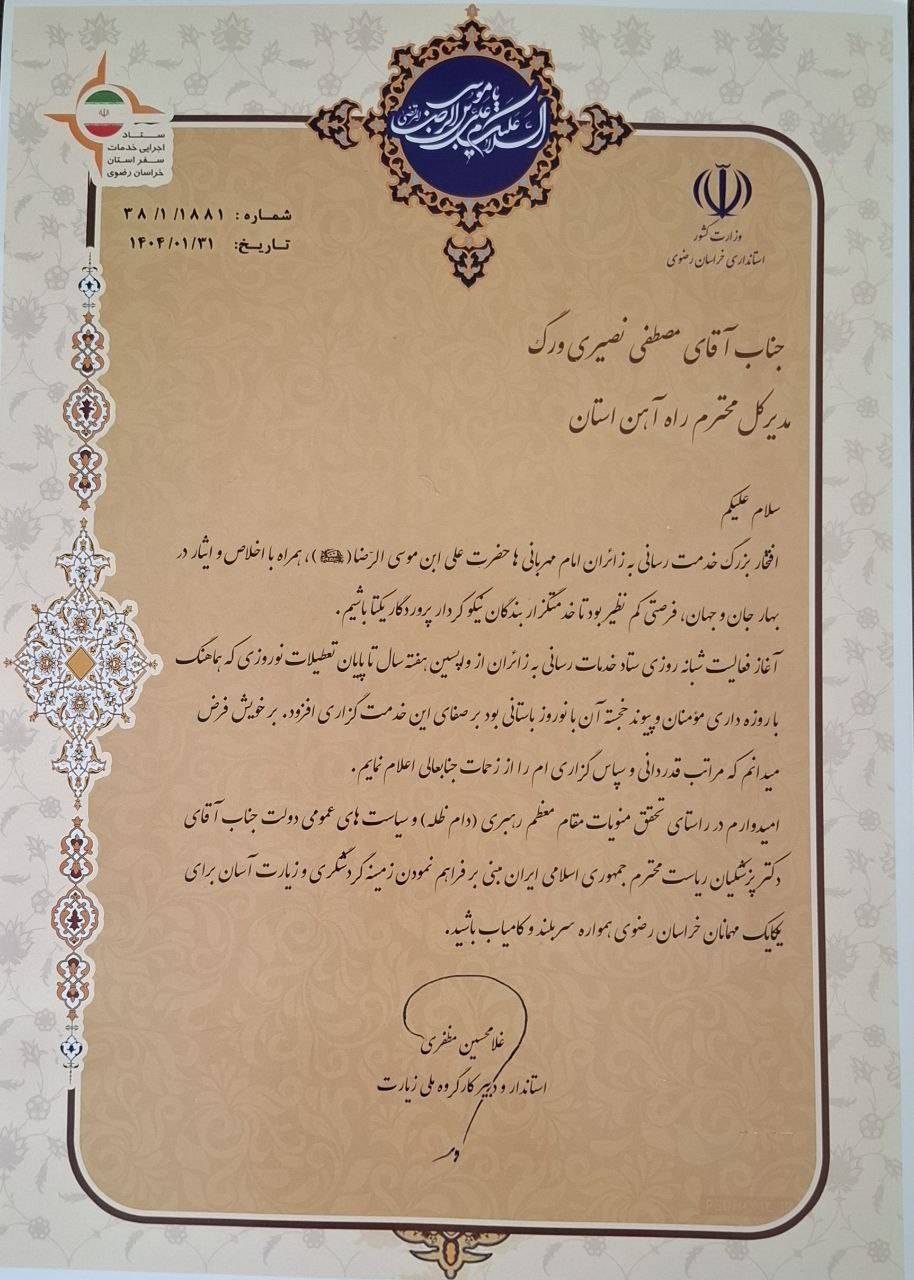 السلام علیک یا علی بن موسی الرضا المرتضی
ستاد
اجرایی خدمات
سفر استان
خراسان رضوی
شماره : ۳۸/۱/۱۸۸۱
تاریخ: ۱۴۰۴/۰۱/۳۱
وزارت کشور
استانداری خراسان رضوی
جناب آقای مصطفی نصیری ورگ
مدیرکل محترم راه آهن استان
سلام علیکم
افتخار بزرگ خدمت رسانی به زائران امام مهربانی ها حضرت علی ابن موسی الرّضا()، همراه با اخلاص و ایثار در
بهار جان و جهان، فرصتی کم نظیر بود تا خدمتگزار بندگان نیکو کردار پروردگار یکتا باشیم.
آغاز فعالیت شبانه روزی ستاد خدمات رسانی به زائران از واپسین هفته سال تا پایان تعطیلات نوروزی که هماهنگ
با روزه داری مؤمنان و پیوند خجسته آن با نوروز باستانی بود بر صفای این خدمت گزاری افزود. بر خویش فرض
میدانم که مراتب قدردانی و سپاس گزاری ام را از زحمات جنابعالی اعلام نمایم.
امیدوارم در راستای تحقق منویات مقام معظم رهبری (دام ظله) و سیاست های عمومی دولت جناب آقای
دکتر پزشکیان ریاست محترم جمهوری اسلامی ایران مبنی بر فراهم نمودن زمینه گردشگری و زیارت آسان برای
یکایک مهمانان خراسان رضوی همواره سربلند و کامیاب باشید.
غلامحسین مظفری
استاندار و دبیر کارگروه ملی زیارت